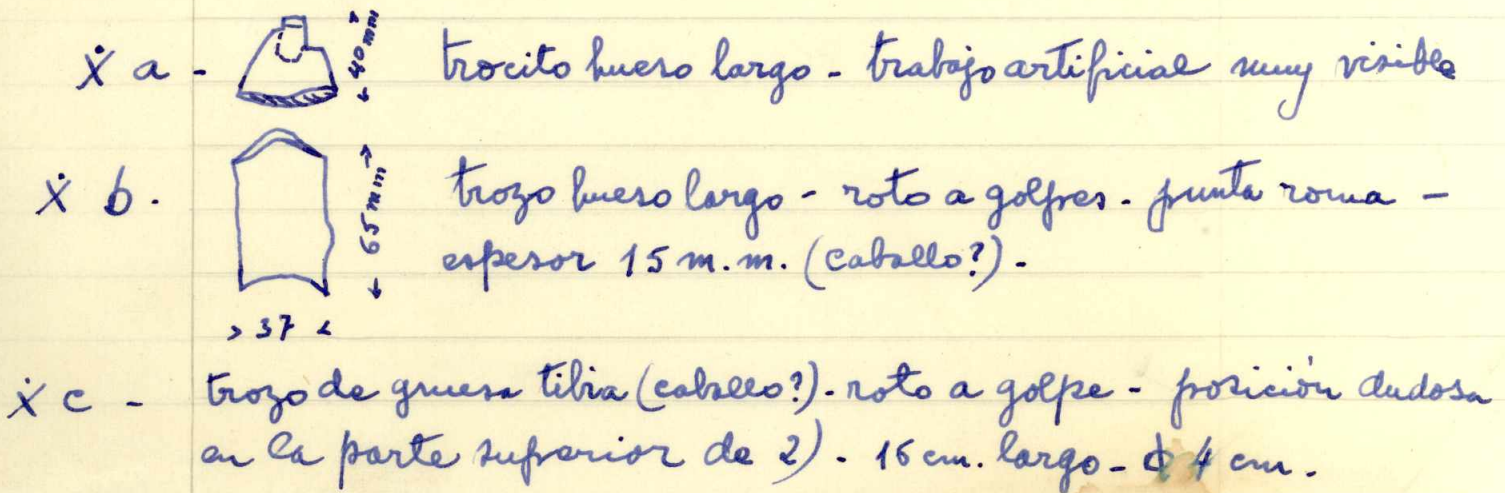 ẋ a - 40 mm trocito hueso largo - trabajo artificial muy visible
ẋ b. 65 mm trozo hueso largo - roto a golpes. punta roma -
espesor 15 m.m. (caballo?).-
> 37 <
ẋ c - trozo de gruesa tibia (caballo?). roto a golpe - posición dudosa
en la parte superior de 2). 16 cm. largo - ϕ 4 cm.